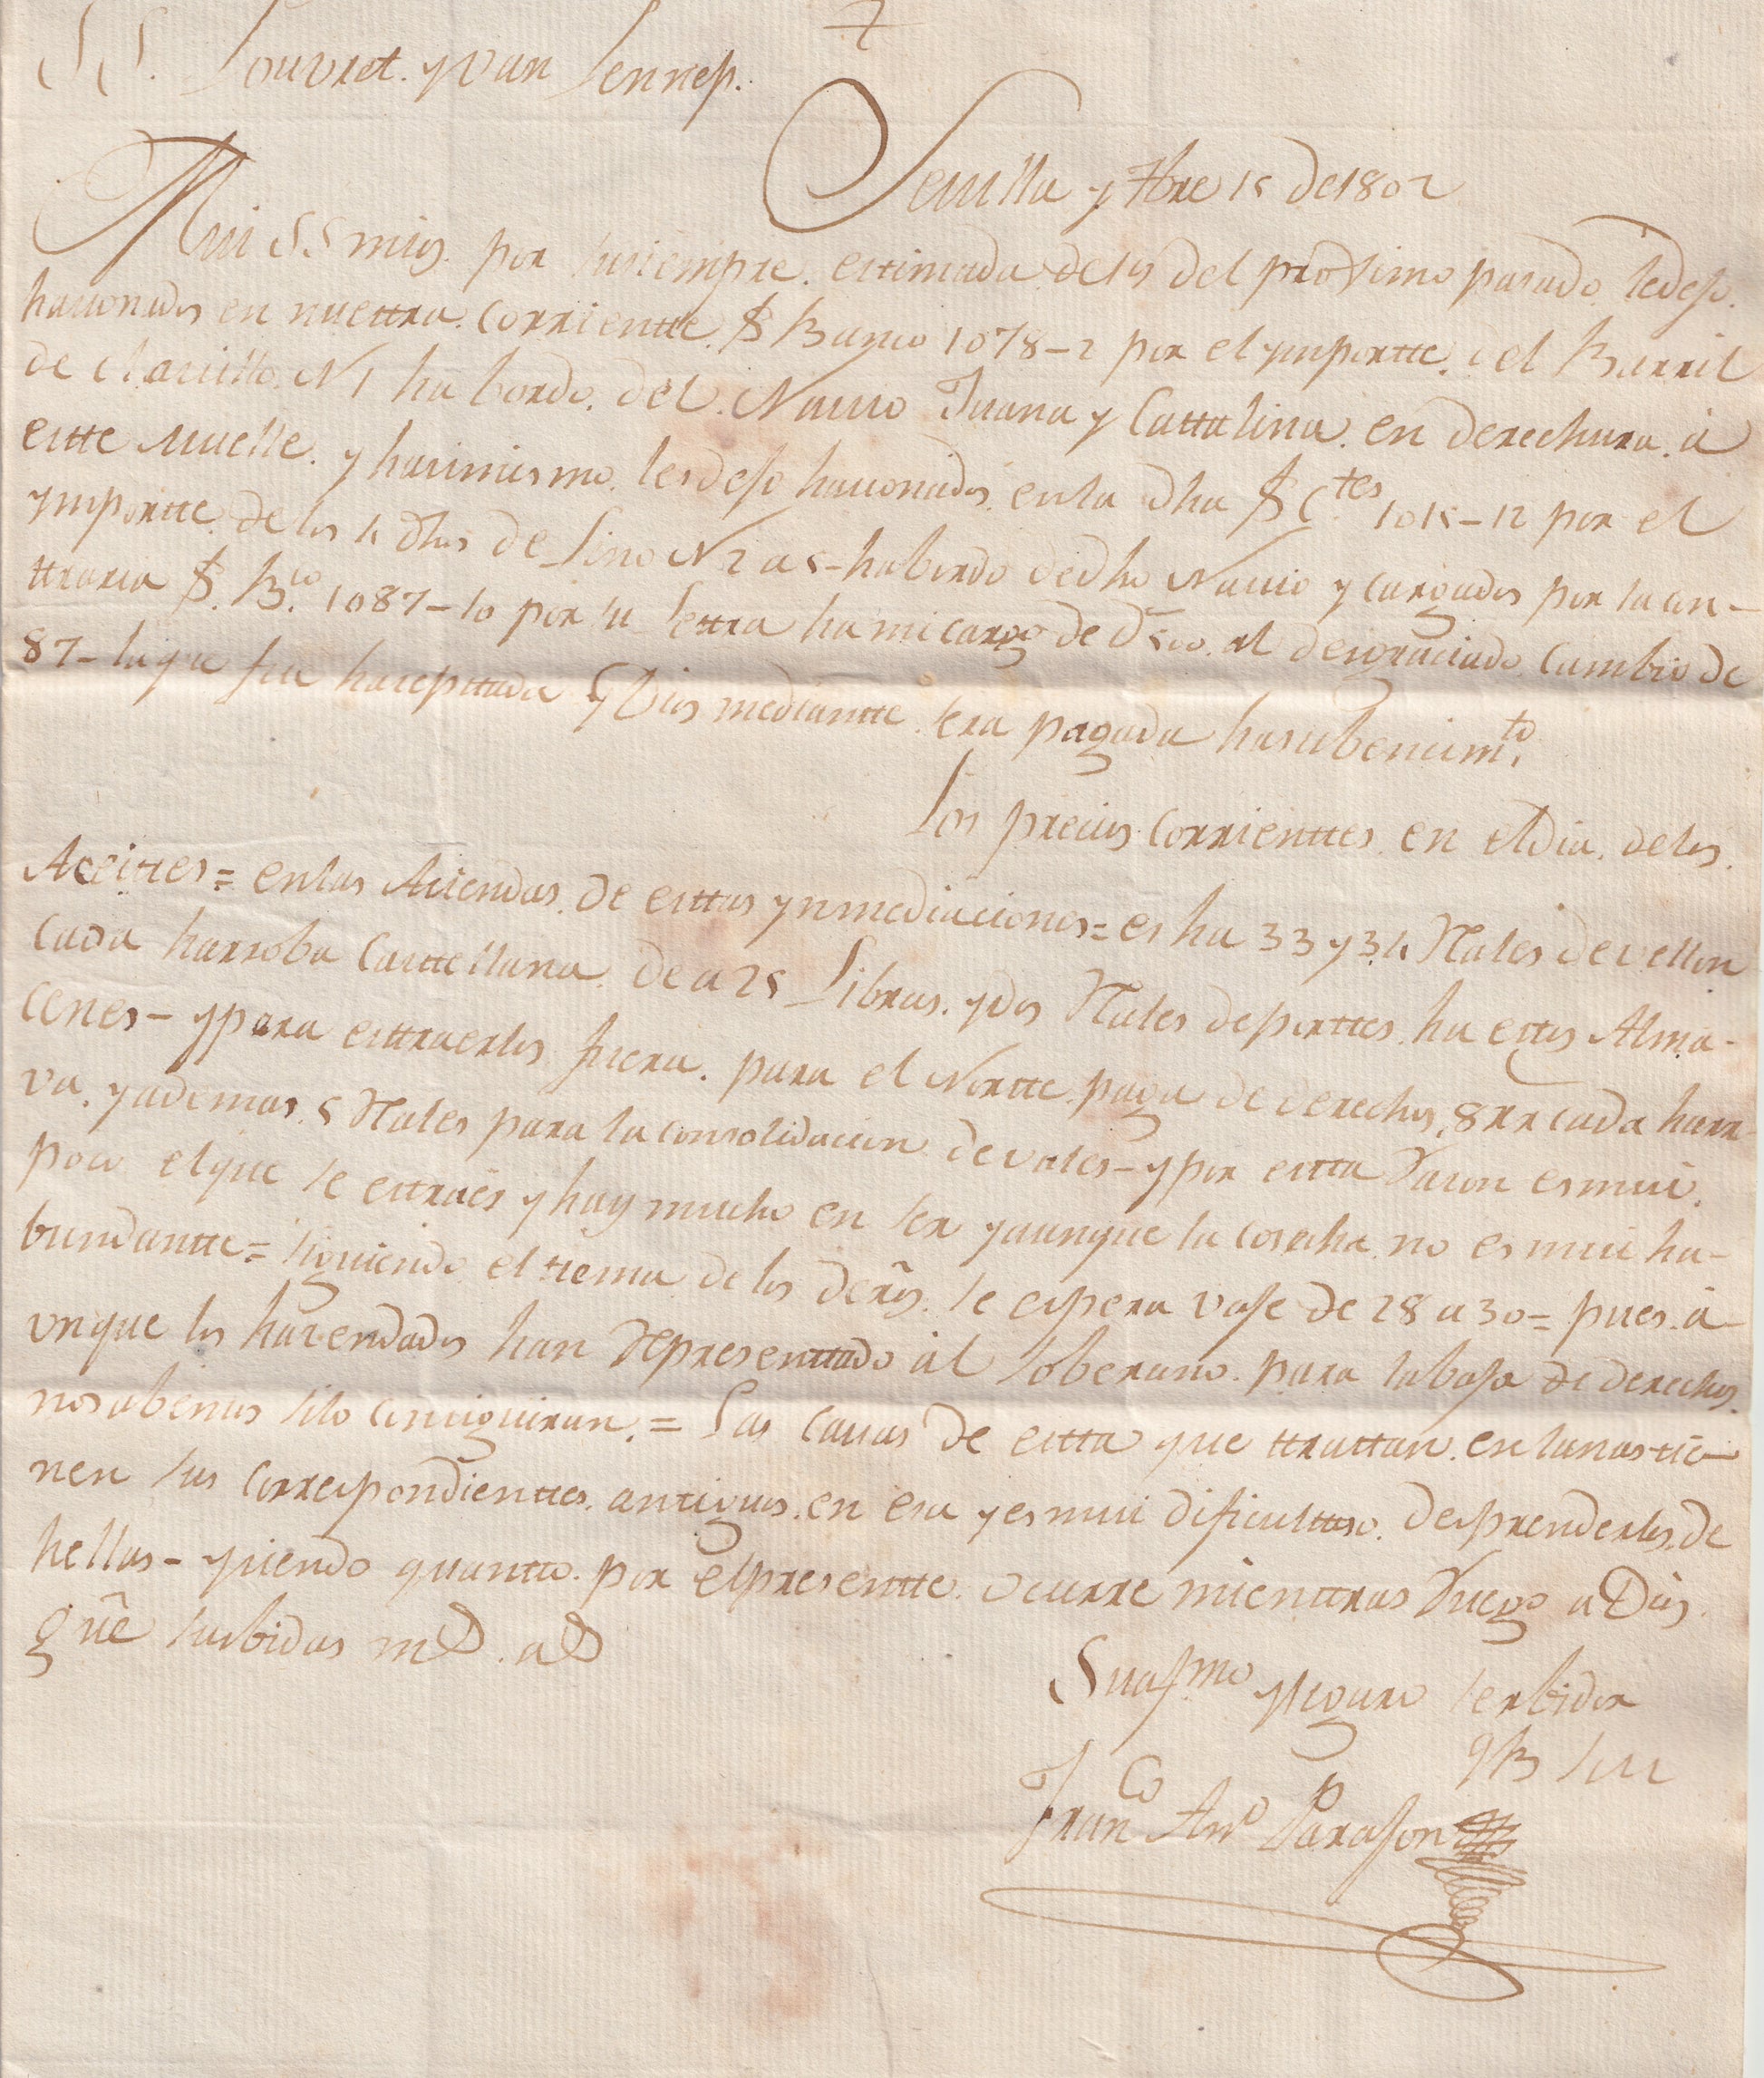 SS. Louvret. y Van Lennep.
Sevilla y 7bre 15 de 1802
Mui SS mios. por su siempre. estimada de 15 del proximo pasado. le dejo.
havonados en nuesttra. Corrientte. $ Banco 1078-2 por el ymportte. del Barril
de Clavillo. N 1 ha bordo. del. Navio Juana y Cattalina. en derechura. á
estte Muelle. y hasimismo. les dejo havonados. en la dha $ C.tes 1015-12 por el
ymportte. de los 4 dhos de Lino N 2 a 5 - habordo de dho Navio y cargados por la con-
ttraria $. B.co 1087-10 por su Lettra ha mi cargo de D 500. al desgraciado. Cambio de
87- la que fue haceptada y Dios mediantte. sera pagada hasubencim.to
Los precios. Corrienttes. en el dia. de los.
Aceites = en las Aciendas. de esttas ynmediaciones = es ha 33 y 34 Rales de vellon
cada harroba Casttellana. de a 25 Libras. y dos Rales de porttes. ha esttos Alma-
cenes - y para esttraerlos fuera. para el Nortte. paga de derechos. 8 rr cada harr-
va. y ademas. 5 Rales para la consolidacion de vales - y por estta Razon es mui.
poco el que se esttraës y hay mucho en ser y aunque la cosecha. no es mui ha-
bundantte = siguiendo el tiema de los derõs. se espera vaje de 28 a 30 = pues. á-
unque los hacendados han Representtado ál soberano. para la baja de derechos.
no sabemos silo consiguiran. = Las Casas de estta que ttrattan. en lanas tie-
nen sus Correspondienttes. antiguos. en esa y es mui dificulttoso. desprenderlos. de
hellas - y siendo quantto. por el presentte. ocurre mienttras Ruego a Dios.
güe susbidas mD. aD
Su af.mo y siguro serbidor
q B su M
Fran.co Ant.o Parajon